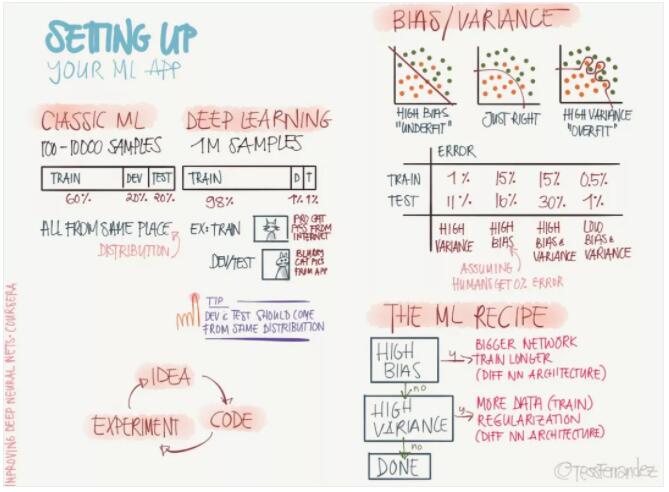 SETTING UP
YOUR ML APP
CLASSIC ML
100-10000 SAMPLES
TRAIN DEV TEST
60% 20% 20%
ALL FROM SAME PLACE
DISTRIBUTION
DEEP LEARNING
1M SAMPLES
TRAIN D T
98% 1% 1%
EX: TRAIN
PRO CAT
PICS FROM
INTERNET
DEV/TEST
BLURRY
CAT PICS
FROM APP
TIP
DEV & TEST SHOULD COME
FROM SAME DISTRIBUTION
IDEA
CODE
EXPERIMENT
IMPROVING DEEP NEURAL NETS · COURSERA
BIAS/VARIANCE
HIGH BIAS
"UNDERFIT"
JUST RIGHT
HIGH VARIANCE
"OVERFIT"
ERROR
TRAIN 1% 15% 15% 0.5%
TEST 11% 16% 30% 1%
HIGH
VARIANCE
HIGH
BIAS
HIGH
BIAS &
VARIANCE
LOW
BIAS &
VARIANCE
ASSUMING
HUMANS GET 0% ERROR
THE ML RECIPE
HIGH
BIAS
y
BIGGER NETWORK
TRAIN LONGER
(DIFF NN ARCHITECTURE)
no
HIGH
VARIANCE
y
MORE DATA (TRAIN)
REGULARIZATION
(DIFF NN ARCHITECTURE)
no
DONE
©TessFerrandez